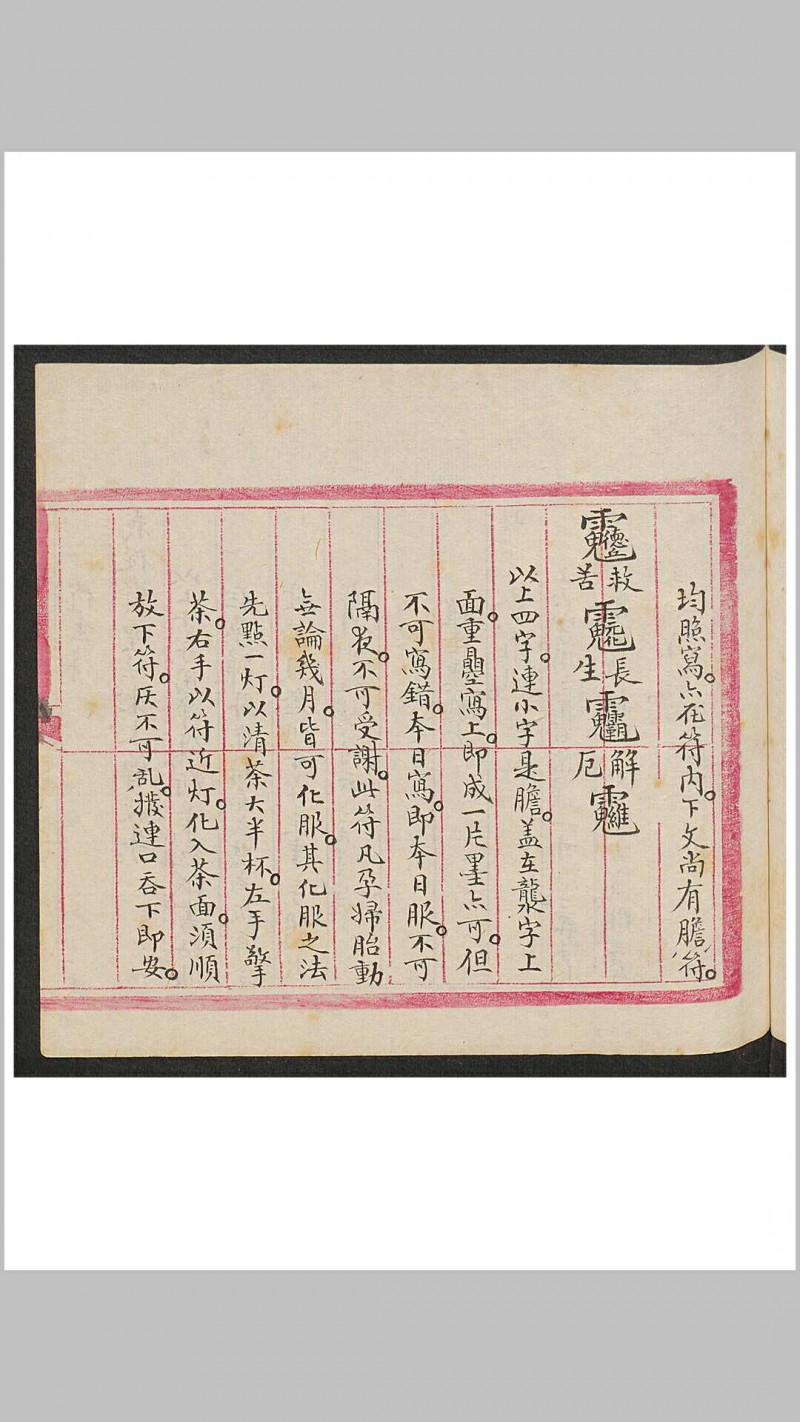 均照寫。亦在符内。下文尚有膽符。
救苦 長生 解厄
以上四字。連小字是膽。盖在襲字上
面。重疊寫上。即成一片墨亦可。但
不可寫錯。本日寫。即本日服。不可
隔夜。不可受謝。此符凡孕婦胎動
無論幾月。皆可化服。其化服之法
先點一灯。以清茶大半杯。左手擎
茶。右手以符近灯。化入茶面。須順
放下符。灰不可乱。撥連口吞下即安。